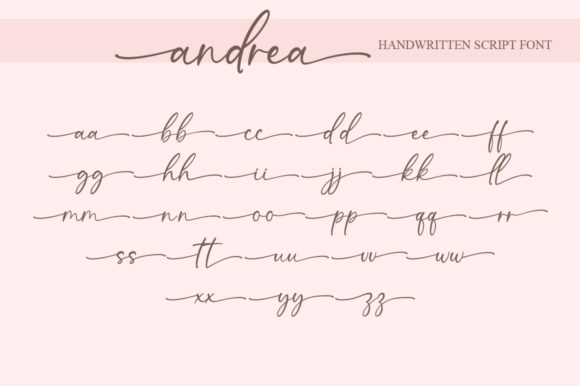 andrea HANDWRITTEN SCRIPT FONT
aa bb cc dd ee ff
gg hh ii jj kk ll
mm nn oo pp qq rr
ss tt uu vv ww
xx yy zz